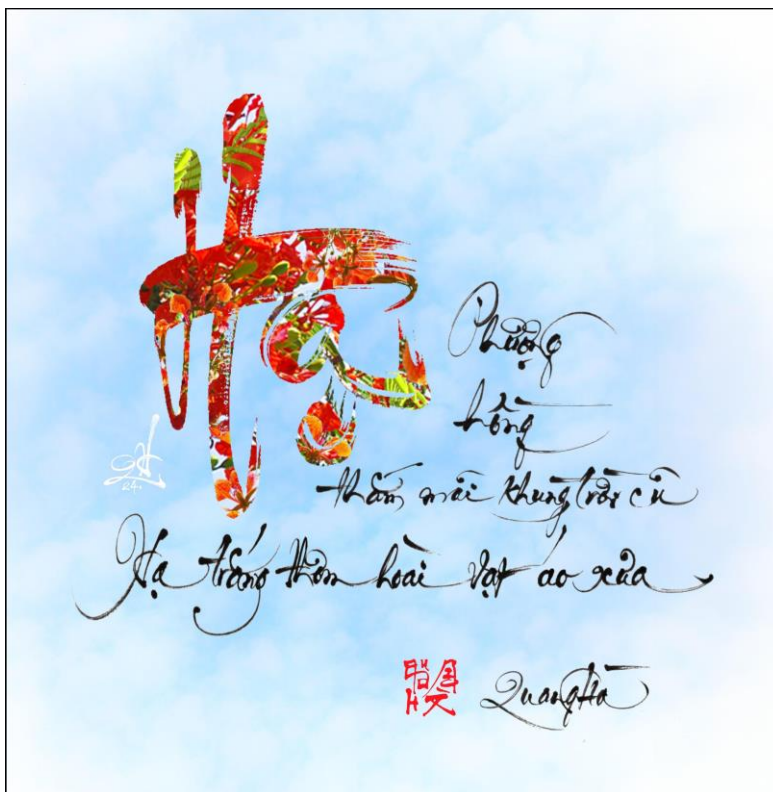 Hạ
Phượng
hồng
thắm mãi khung trời cũ
Hạ trắng thơm hoài vạt áo xưa
QH
24.
Quang Hà